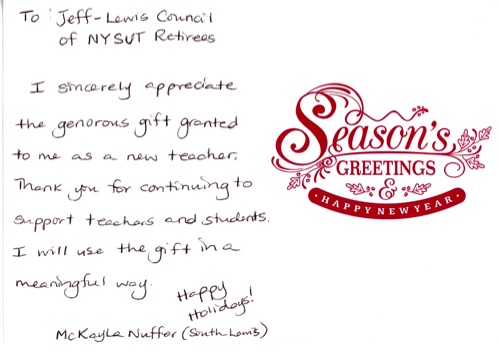 To: Jeff-Lewis Council
of NYSUT Retirees
I sincerely appreciate
the genorous gift granted
to me as a new teacher.
Thank you for continuing to
support teachers and students.
I will use the gift in a
meaningful way.
Happy
Holidays!
McKayla Nuffer (South Lewis)
Season's
GREETINGS
&
• HAPPY NEW YEAR •